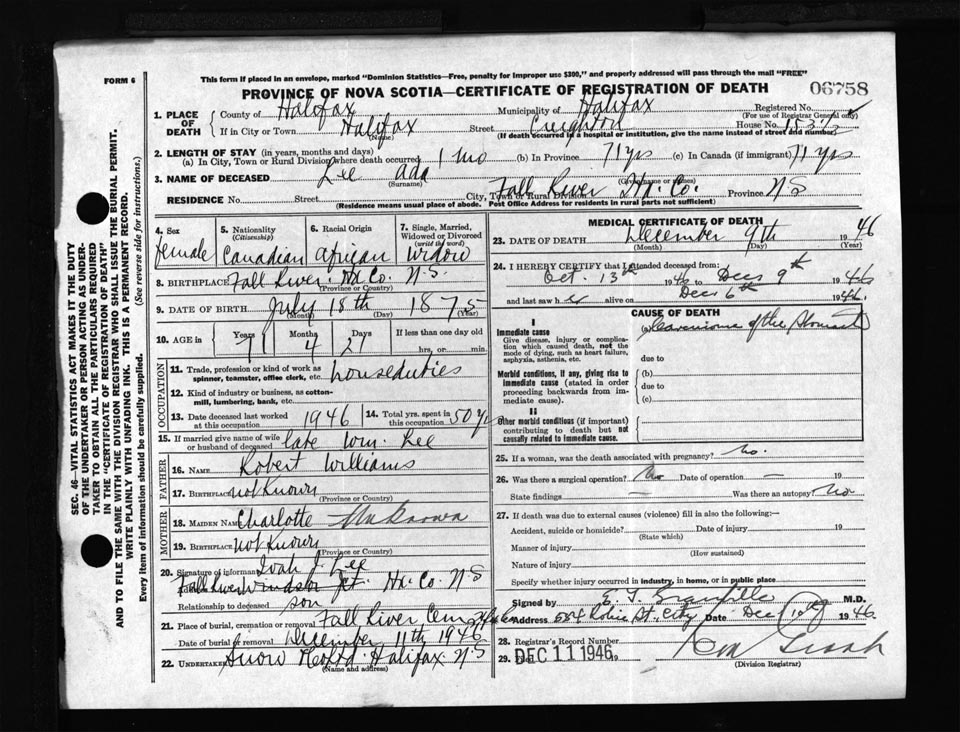 FORM 6
This form if placed in an envelope, marked "Dominion Statistics—Free, penalty for improper use $300," and properly addressed will pass through the mail "FREE"
PROVINCE OF NOVA SCOTIA—CERTIFICATE OF REGISTRATION OF DEATH
06758
1. PLACE OF DEATH
County of Halifax
Municipality of Halifax
Registered No.
(For use of Registrar General only)
If in City or Town Halifax
(Name)
Street Creighton House No. 153½
(If death occurred in a hospital or institution, give the name instead of street and number)
2. LENGTH OF STAY (in years, months and days)
(a) In City, Town or Rural Division where death occurred 1 mo (b) In Province 71 yrs (c) In Canada (if immigrant) 71 yrs
3. NAME OF DECEASED Lee Ada
(Surname) (Given name or names)
RESIDENCE No. Street City, Town or Rural Division Fall River Hx. Co. Province N S
(Residence means usual place of abode. Post Office Address for residents in rural parts not sufficient)
4. Sex
female
5. Nationality
(Citizenship)
Canadian
6. Racial Origin
African
7. Single, Married, Widowed or Divorced
(write the word)
Widow
8. BIRTHPLACE Fall River Hx Co. N. S.
(Province or Country)
9. DATE OF BIRTH July 18th 1875
(Month) (Day) (Year)
10. AGE in
Years 71
Months 4
Days 27
If less than one day old
hrs. or min.
OCCUPATION
11. Trade, profession or kind of work as spinner, teamster, office clerk, etc. houseduties
12. Kind of industry or business, as cotton-mill, lumbering, bank, etc.
13. Date deceased last worked at this occupation 1946
14. Total yrs. spent in this occupation 50 yrs
15. If married give name of wife or husband of deceased late Wm. Lee
FATHER
16. NAME Robert Williams
17. BIRTHPLACE not Known
(Province or Country)
MOTHER
18. MAIDEN NAME Charlotte Unknown
19. BIRTHPLACE not Known
(Province or Country)
20. Signature of informant J. Lee
Fall River Windsor Jct. Hx. Co. N S
Relationship to deceased son
21. Place of burial, cremation or removal Fall River, Cem
Date of burial or removal December 11th 1946
22. UNDERTAKER Snow Halifax N. S
(Name and address)
MEDICAL CERTIFICATE OF DEATH
23. DATE OF DEATH December 9th 1946
(Month) (Day) (Year)
24. I HEREBY CERTIFY that I attended deceased from:
Oct. 13th 1946 to Dec 9th 1946
and last saw her alive on Dec 6th 1946.
CAUSE OF DEATH
I
Immediate cause
Give disease, injury or complication which caused death, not the mode of dying, such as heart failure, asphyxia, asthenia, etc.
(a) Carcinoma of the Stomach
due to
Morbid conditions, if any, giving rise to immediate cause (stated in order proceeding backwards from immediate cause).
(b)
due to
(c)
II
Other morbid conditions (if important) contributing to death but not causally related to immediate cause.
25. If a woman, was the death associated with pregnancy? No.
26. Was there a surgical operation? No Date of operation — 19
State findings — Was there an autopsy? No
27. If death was due to external causes (violence) fill in also the following:—
Accident, suicide or homicide? Date of injury 19
(State which)
Manner of injury
(How sustained)
Nature of injury
Specify whether injury occurred in industry, in home, or in public place
Signed by E. M.D.
Address St. City Date Dec 10 1946.
28. Registrar's Record Number
29. Filed DEC 11 1946
(Division Registrar)
SEC. 46—VITAL STATISTICS ACT MAKES IT THE DUTY OF THE UNDERTAKER OR PERSON ACTING AS UNDERTAKER TO OBTAIN ALL THE PARTICULARS REQUIRED IN THE "CERTIFICATE OF REGISTRATION OF DEATH" AND TO FILE THE SAME WITH THE DIVISION REGISTRAR WHO SHALL ISSUE THE BURIAL PERMIT.
WRITE PLAINLY WITH UNFADING INK. THIS IS A PERMANENT RECORD.
Every item of information should be carefully supplied. (See reverse side for instructions.)